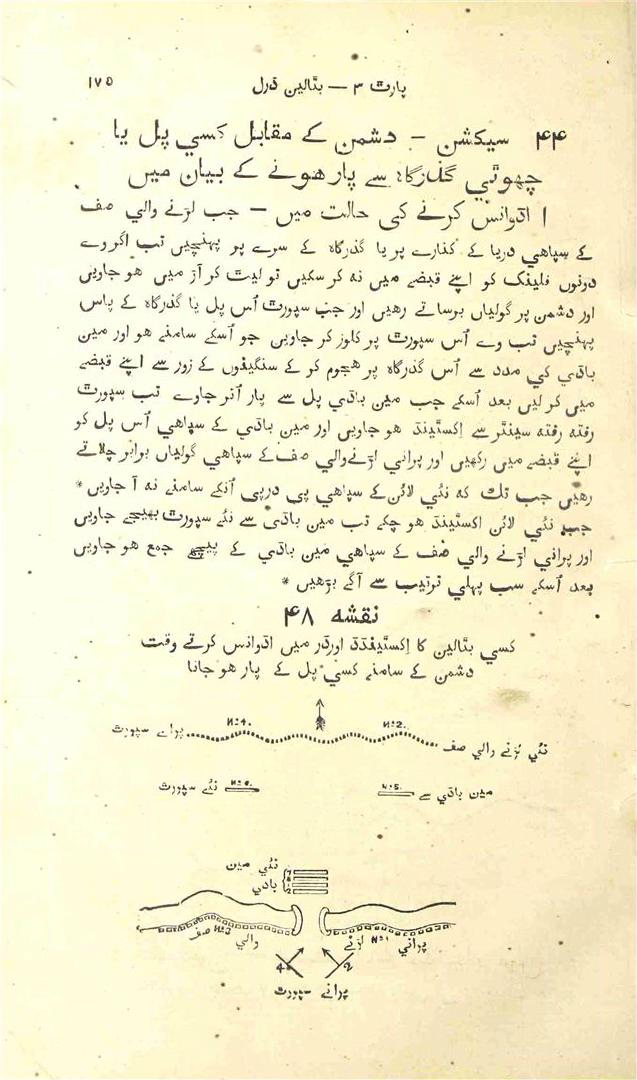 پارت ۳ — بٹالین ڈرل ۱۷۵
۴۴ سیکشن — دشمن کے مقابل کسي پل یا
چھوٹي گذرگاہ سے پار هونے کے بیان میں
۱ اڈوانس کرنے کی حالت میں — جب لڑنے والي صف
کے سپاهي دریا کے کنارے پر یا گذرگاہ کے سرے پر پہنچیں تب اگر وے
دونوں فلینک کو اپنے قبضے میں نہ کر سکیں تو لیٹ کر آڑ میں هو جاویں
اور دشمن پر گولیاں برساتے رهیں اور جب سپورٹ اُس پل یا گذرگاہ کے پاس
پہنچیں تب وے اُس سپورٹ پر کلوز کر جاویں جو اُسکے سامنے هو اور مین
باڈي کي مدد سے اُس گذرگاہ پر هجوم کر کے سنگینوں کے زور سے اپنے قبضے
میں کر لیں بعد اُسکے جب مین باڈي پل سے پار اُتر جاوے تب سپورٹ
رفتہ رفتہ سینٹر سے اِکسٹینڈ هو جاویں اور مین باڈي کے سپاهي اُس پل کو
اپنے قبضے میں رکھیں اور پراني لڑنے والي صف کے سپاهي گولیاں برابر چلاتے
رهیں جب تک کہ نئي لائن کے سپاهي پي درپي اُنکے سامنے نہ آ جاویں *
جب نئي لائن اکسٹینڈ هو چکے تب مین باڈي سے نئے سپورٹ بھیجے جاویں
اور پراني لڑنے والي صف کے سپاهي مین باڈي کے پیچھے جمع هو جاویں
بعد اُسکے سب پہلي ترتیب سے آگے بڑهیں *
نقشہ ۴۸
کسي بٹالین کا اِکسٹینڈڈ اورڈر میں اڈوانس کرتے وقت
دشمن کے سامنے کسي پل کے پار هو جانا
نئي لڑنے والي صف Nº2. Nº4. پراے سپورٹ
مین باڈي سے Nº5. Nº6. نئے سپورٹ
نئي مین
باڈي
پراني Nº1 لڑنے والي Nº3 صف
2 4
پرانے سپورٹ